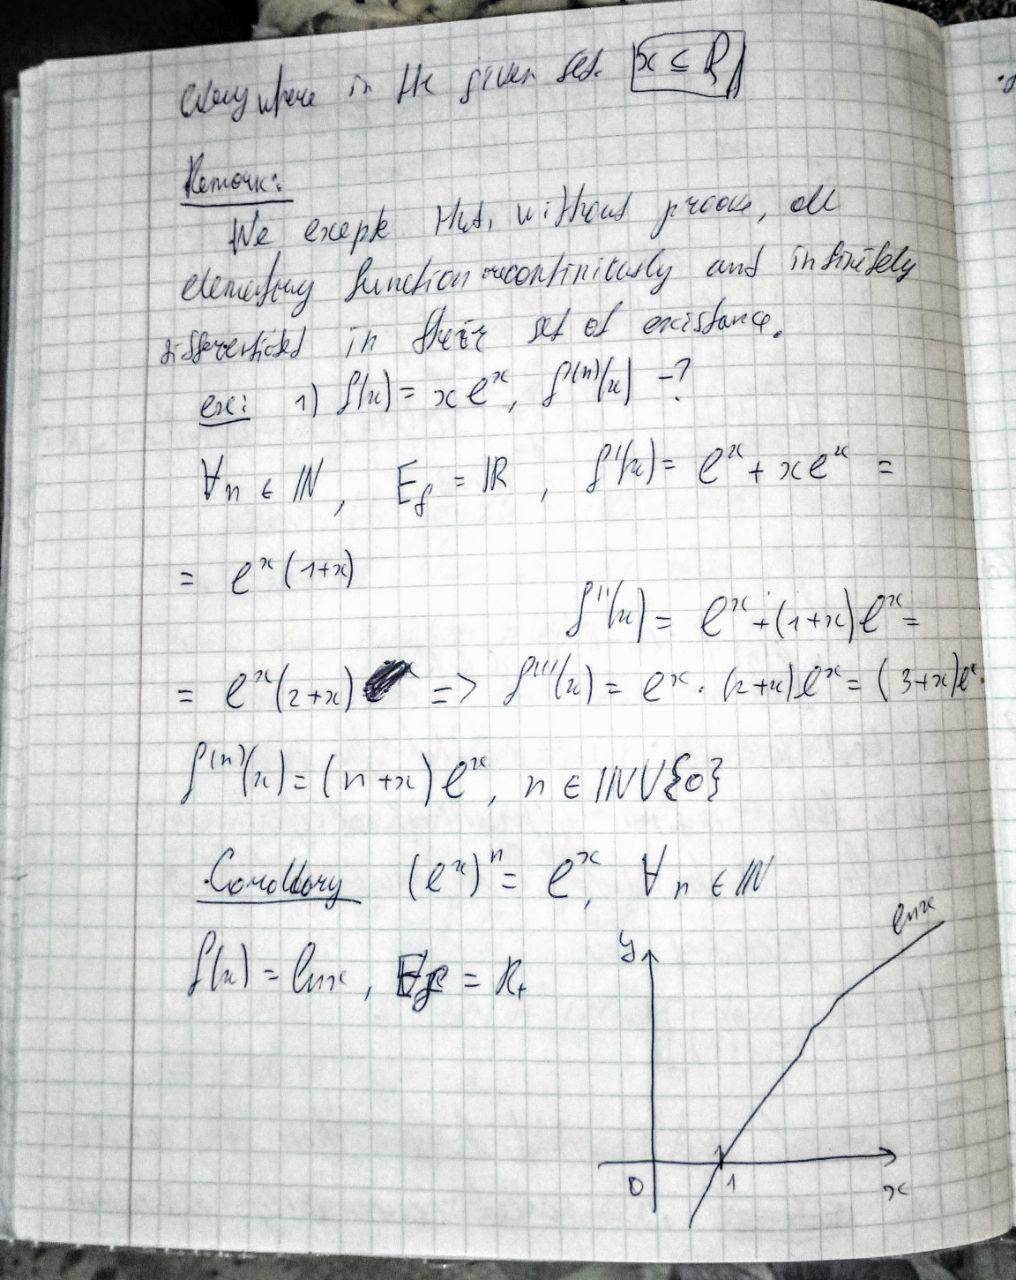 everywhere in the given set. x ⊆ R
Remark:
We exepte that, without proove, all
elementary function are continiously and infinitely
differentiated in their set of existance.
ex: 1) f(x) = x eˣ, f⁽ⁿ⁾(x) -?
∀n ∈ ℕ, E_f = ℝ, f'(x) = eˣ + xeˣ =
= eˣ(1+x)
f''(x) = eˣ + (1+x)eˣ =
= eˣ(2+x) => f'''(x) = eˣ · (2+x)eˣ = (3+x)eˣ.
f⁽ⁿ⁾(x) = (n+x)eˣ, n ∈ ℕ∪{0}
Corollary (eˣ)ⁿ = eˣ, ∀n ∈ ℕ
f(x) = lnx, E_f = R₊
y
lnx
0 1 x